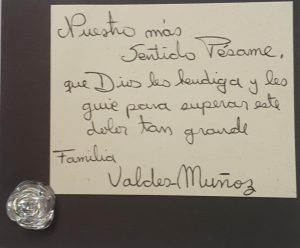 Nuestro más
Sentido Pésame,
que Dios les bendiga y les
guie para superar este
dolor tan grande
Familia
Valdes-Muñoz